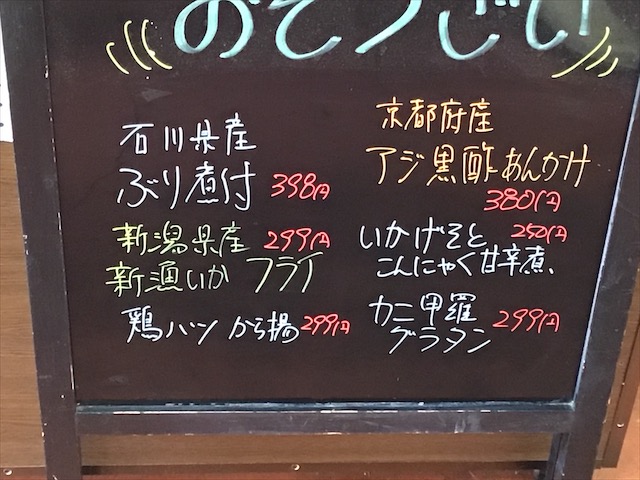 おそうざい
石川県産
ぶり煮付 398円
新潟県産 299円
新漁いか フライ
鶏パン から揚 299円
京都府産
アジ黒酢あんかけ
380円
いかげそと 250円
こんにゃく甘辛煮、
カニ甲羅
グラタン 299円